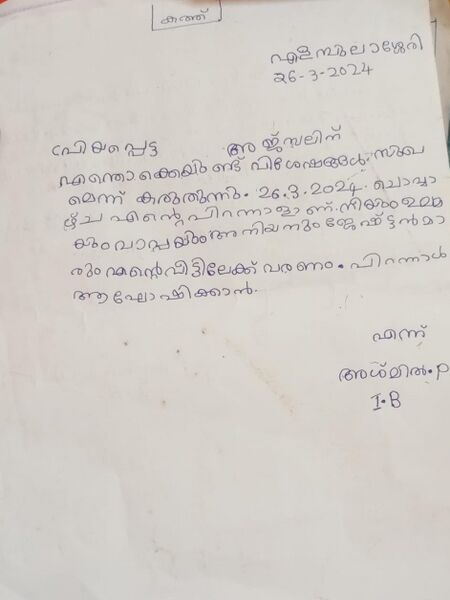 കത്ത്
എളമ്പുലാശ്ശേരി
26-3-2024
പ്രിയപ്പെട്ട അജ്മലിന്
എന്തൊക്കെയുണ്ട് വിശേഷങ്ങൾ. സുഖ
മെന്ന് കരുതുന്നു. 26.3.2024. ചൊവ്വാ
ഴ്ച എന്റെ പിറന്നാളാണ്. നീയും ഉമ്മ
യും വാപ്പയും അനിയനും ജേഷ്ട്ടൻമാ
രും എന്റെ വീട്ടിലേക്ക് വരണം. പിറന്നാൾ
ആഘോഷിക്കാൻ.
എന്ന്
അശ്മിൽ.P
I.B